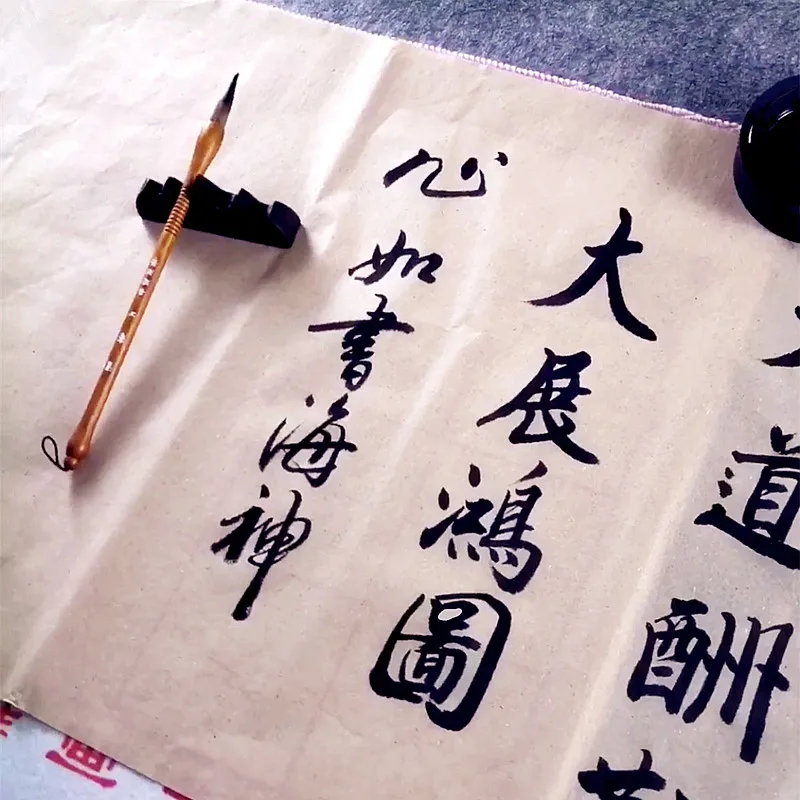 道酬勤
大展鴻圖
心如書海神